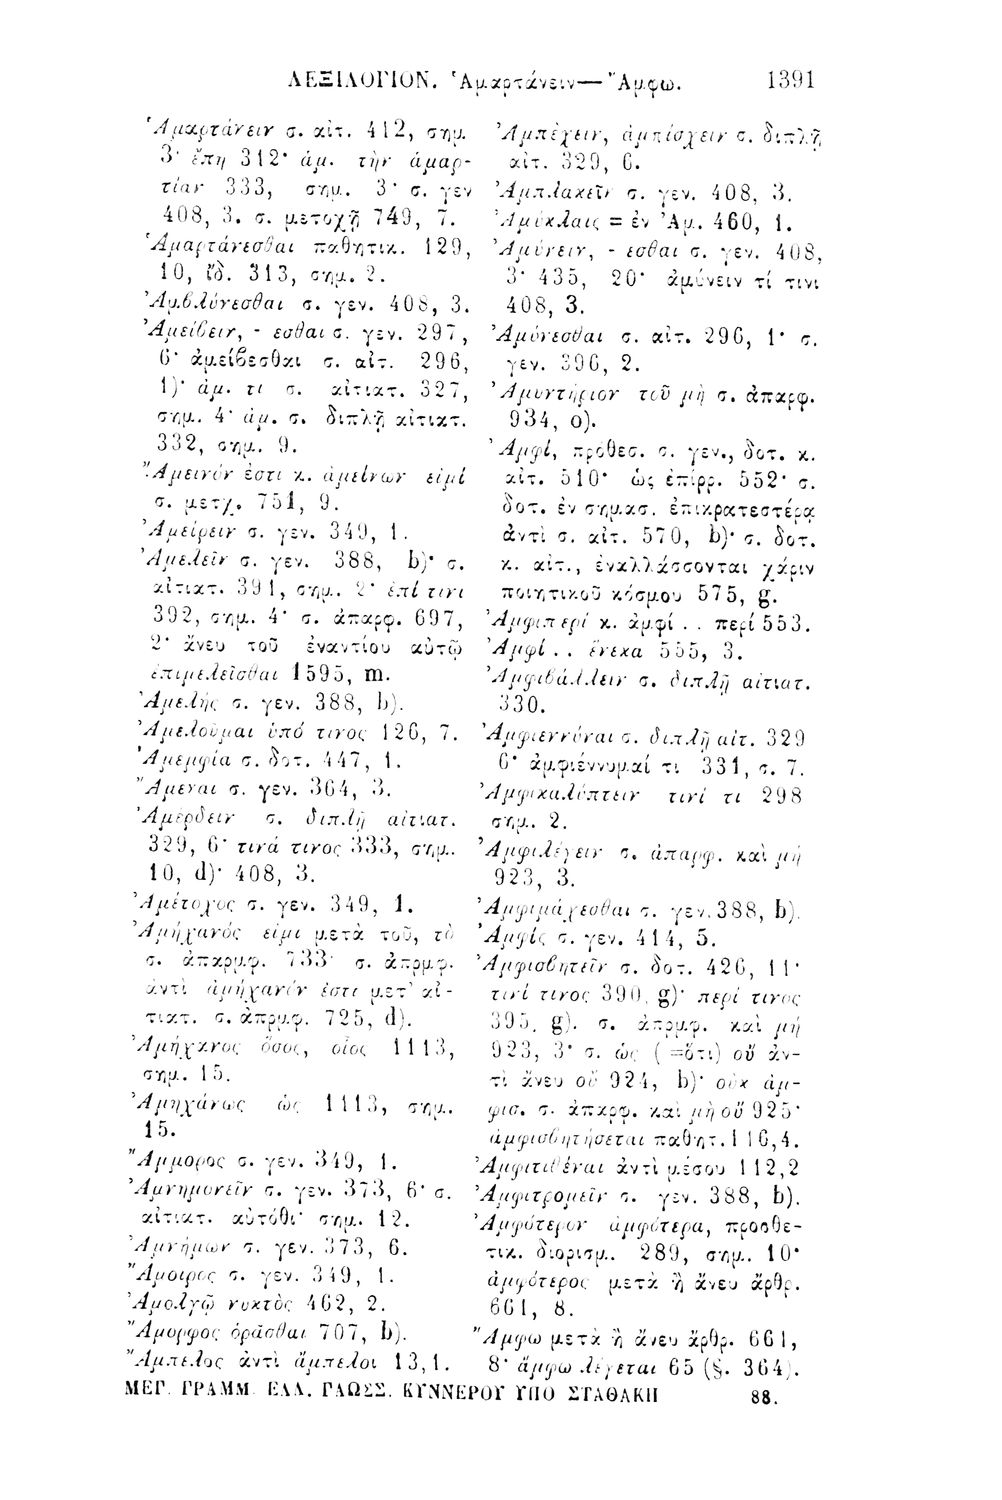 ΛΕΞΙΛΟΓΙΟΝ. Ἁμαρτάνειν—Ἄμφω. 1391
Ἁμαρτάνειν σ. αἰτ. 412, σημ.
3· ἔπη 312· ἁμ. τὴν ἁμαρ-
τίαν 333, σημ. 3· σ. γεν
408, 3. σ. μετοχῇ 749, 7.
Ἁμαρτάνεσθαι παθητικ. 129,
10, ἰδ. 313, σημ. 2.
Ἀμβλύνεσθαι σ. γεν. 408, 3.
Ἀμείβειν, - εσθαι σ. γεν. 297,
6· ἀμείβεσθαι σ. αἰτ. 296,
1)· ἀμ. τι σ. αἰτιατ. 327,
σημ. 4· ἀμ. σ. διπλῇ αἰτιατ.
332, σημ. 9.
Ἄμεινόν ἐστι κ. ἀμείνων εἰμί
σ. μετχ. 751, 9.
Ἀμείρειν σ. γεν. 349, 1.
Ἀμελεῖν σ. γεν. 388, b)· σ.
αἰτιατ. 391, σημ. 2· ἐπί τινι
392, σημ. 4· σ. ἀπαρφ. 697,
2· ἄνευ τοῦ ἐναντίου αὐτῷ
ἐπιμελεῖσθαι 1595, m.
Ἀμελής σ. γεν. 388, b).
Ἀμελοῦμαι ὑπό τινος 126, 7.
Ἀμεμφία σ. δοτ. 447, 1.
Ἄμεναι σ. γεν. 364, 3.
Ἀμέρδειν σ. διπλῇ αἰτιατ.
329, 6· τινά τινος 333, σημ.
10, d)· 408, 3.
Ἀμέτοχος σ. γεν. 349, 1.
Ἀμήχανός εἰμι μετὰ τοῦ, τὸ
σ. ἀπαρμφ. 733· σ. ἀπρμφ.
ἀντὶ ἀμήχανόν ἐστι μετ' αἰ-
τιατ. σ. ἀπρμφ. 725, d).
Ἀμήχανος ὅσος, οἷος 1113,
σημ. 15.
Ἀμηχάνως ὡς 1113, σημ.
15.
Ἄμμορος σ. γεν. 349, 1.
Ἀμνημονεῖν σ. γεν. 373, 6· σ.
αἰτιατ. αὐτόθι· σημ. 12.
Ἀμνήμων σ. γεν. 373, 6.
Ἄμοιρος σ. γεν. 349, 1.
Ἀμολγῷ νυκτὸς 462, 2.
Ἄμορφος ὁρᾶσθαι 707, b).
Ἄμπελος ἀντὶ ἄμπελοι 13,1.
Ἀμπέχειν, ἀμπίσχειν σ. διπλῇ
αἰτ. 329, 6.
Ἀμπλακεῖν σ. γεν. 408, 3.
Ἀμύκλαις = ἐν Ἀμ. 460, 1.
Ἀμύνειν, - εσθαι σ. γεν. 408,
3· 435, 20· ἀμύνειν τί τινι
408, 3.
Ἀμύνεσθαι σ. αἰτ. 296, 1· σ.
γεν. 396, 2.
Ἀμυντήριον τοῦ μὴ σ. ἀπαρφ.
934, ο).
Ἀμφί, πρόθεσ. σ. γεν., δοτ. κ.
αἰτ. 510· ὡς ἐπίρρ. 552· σ.
δοτ. ἐν σημασ. ἐπικρατεστέρᾳ
ἀντὶ σ. αἰτ. 570, b)· σ. δοτ.
κ. αἰτ., ἐναλλάσσονται χάριν
ποιητικοῦ κόσμου 575, g.
Ἀμφιπερί κ. ἀμφί . . περί 553.
Ἀμφί . . ἕνεκα 555, 3.
Ἀμφιβάλλειν σ. διπλῇ αἰτιατ.
330.
Ἀμφιεννύναι σ. διπλῇ αἰτ. 329
6· ἀμφιέννυμαί τι 331, σ. 7.
Ἀμφικαλύπτειν τινί τι 298
σημ. 2.
Ἀμφιλέγειν σ. ἀπαρφ. καὶ μή
923, 3.
Ἀμφιμάχεσθαι σ. γεν. 388, b).
Ἀμφίς σ. γεν. 414, 5.
Ἀμφισβητεῖν σ. δοτ. 426, 11·
τινί τινος 390, g)· περί τινος
395, g). σ. ἀπρμφ. καὶ μή
923, 3· σ. ὡς (=ὅτι) οὔ ἀν-
τὶ ἄνευ οὔ 924, b)· οὐκ ἀμ-
φισ. σ. ἀπαρφ. καὶ μὴ οὔ 925·
ἀμφισβητήσεται παθητ. 116,4.
Ἀμφιτιθέναι ἀντὶ μέσου 112,2
Ἀμφιτρομεῖν σ. γεν. 388, b).
Ἀμφότερον ἀμφότερα, προσθε-
τικ. διορισμ. 289, σημ. 10·
ἀμφότερος μετὰ ἢ ἄνευ ἄρθρ.
661, 8.
Ἄμφω μετὰ ἢ ἄνευ ἄρθρ. 661,
8· ἄμφω λέγεται 65 (§. 364).
ΜΕΓ. ΓΡΑΜΜ. ΕΛΛ. ΓΛΩΣΣ. ΚΥΝΝΕΡΟΥ ΥΠΟ ΣΤΑΘΑΚΗ 88.